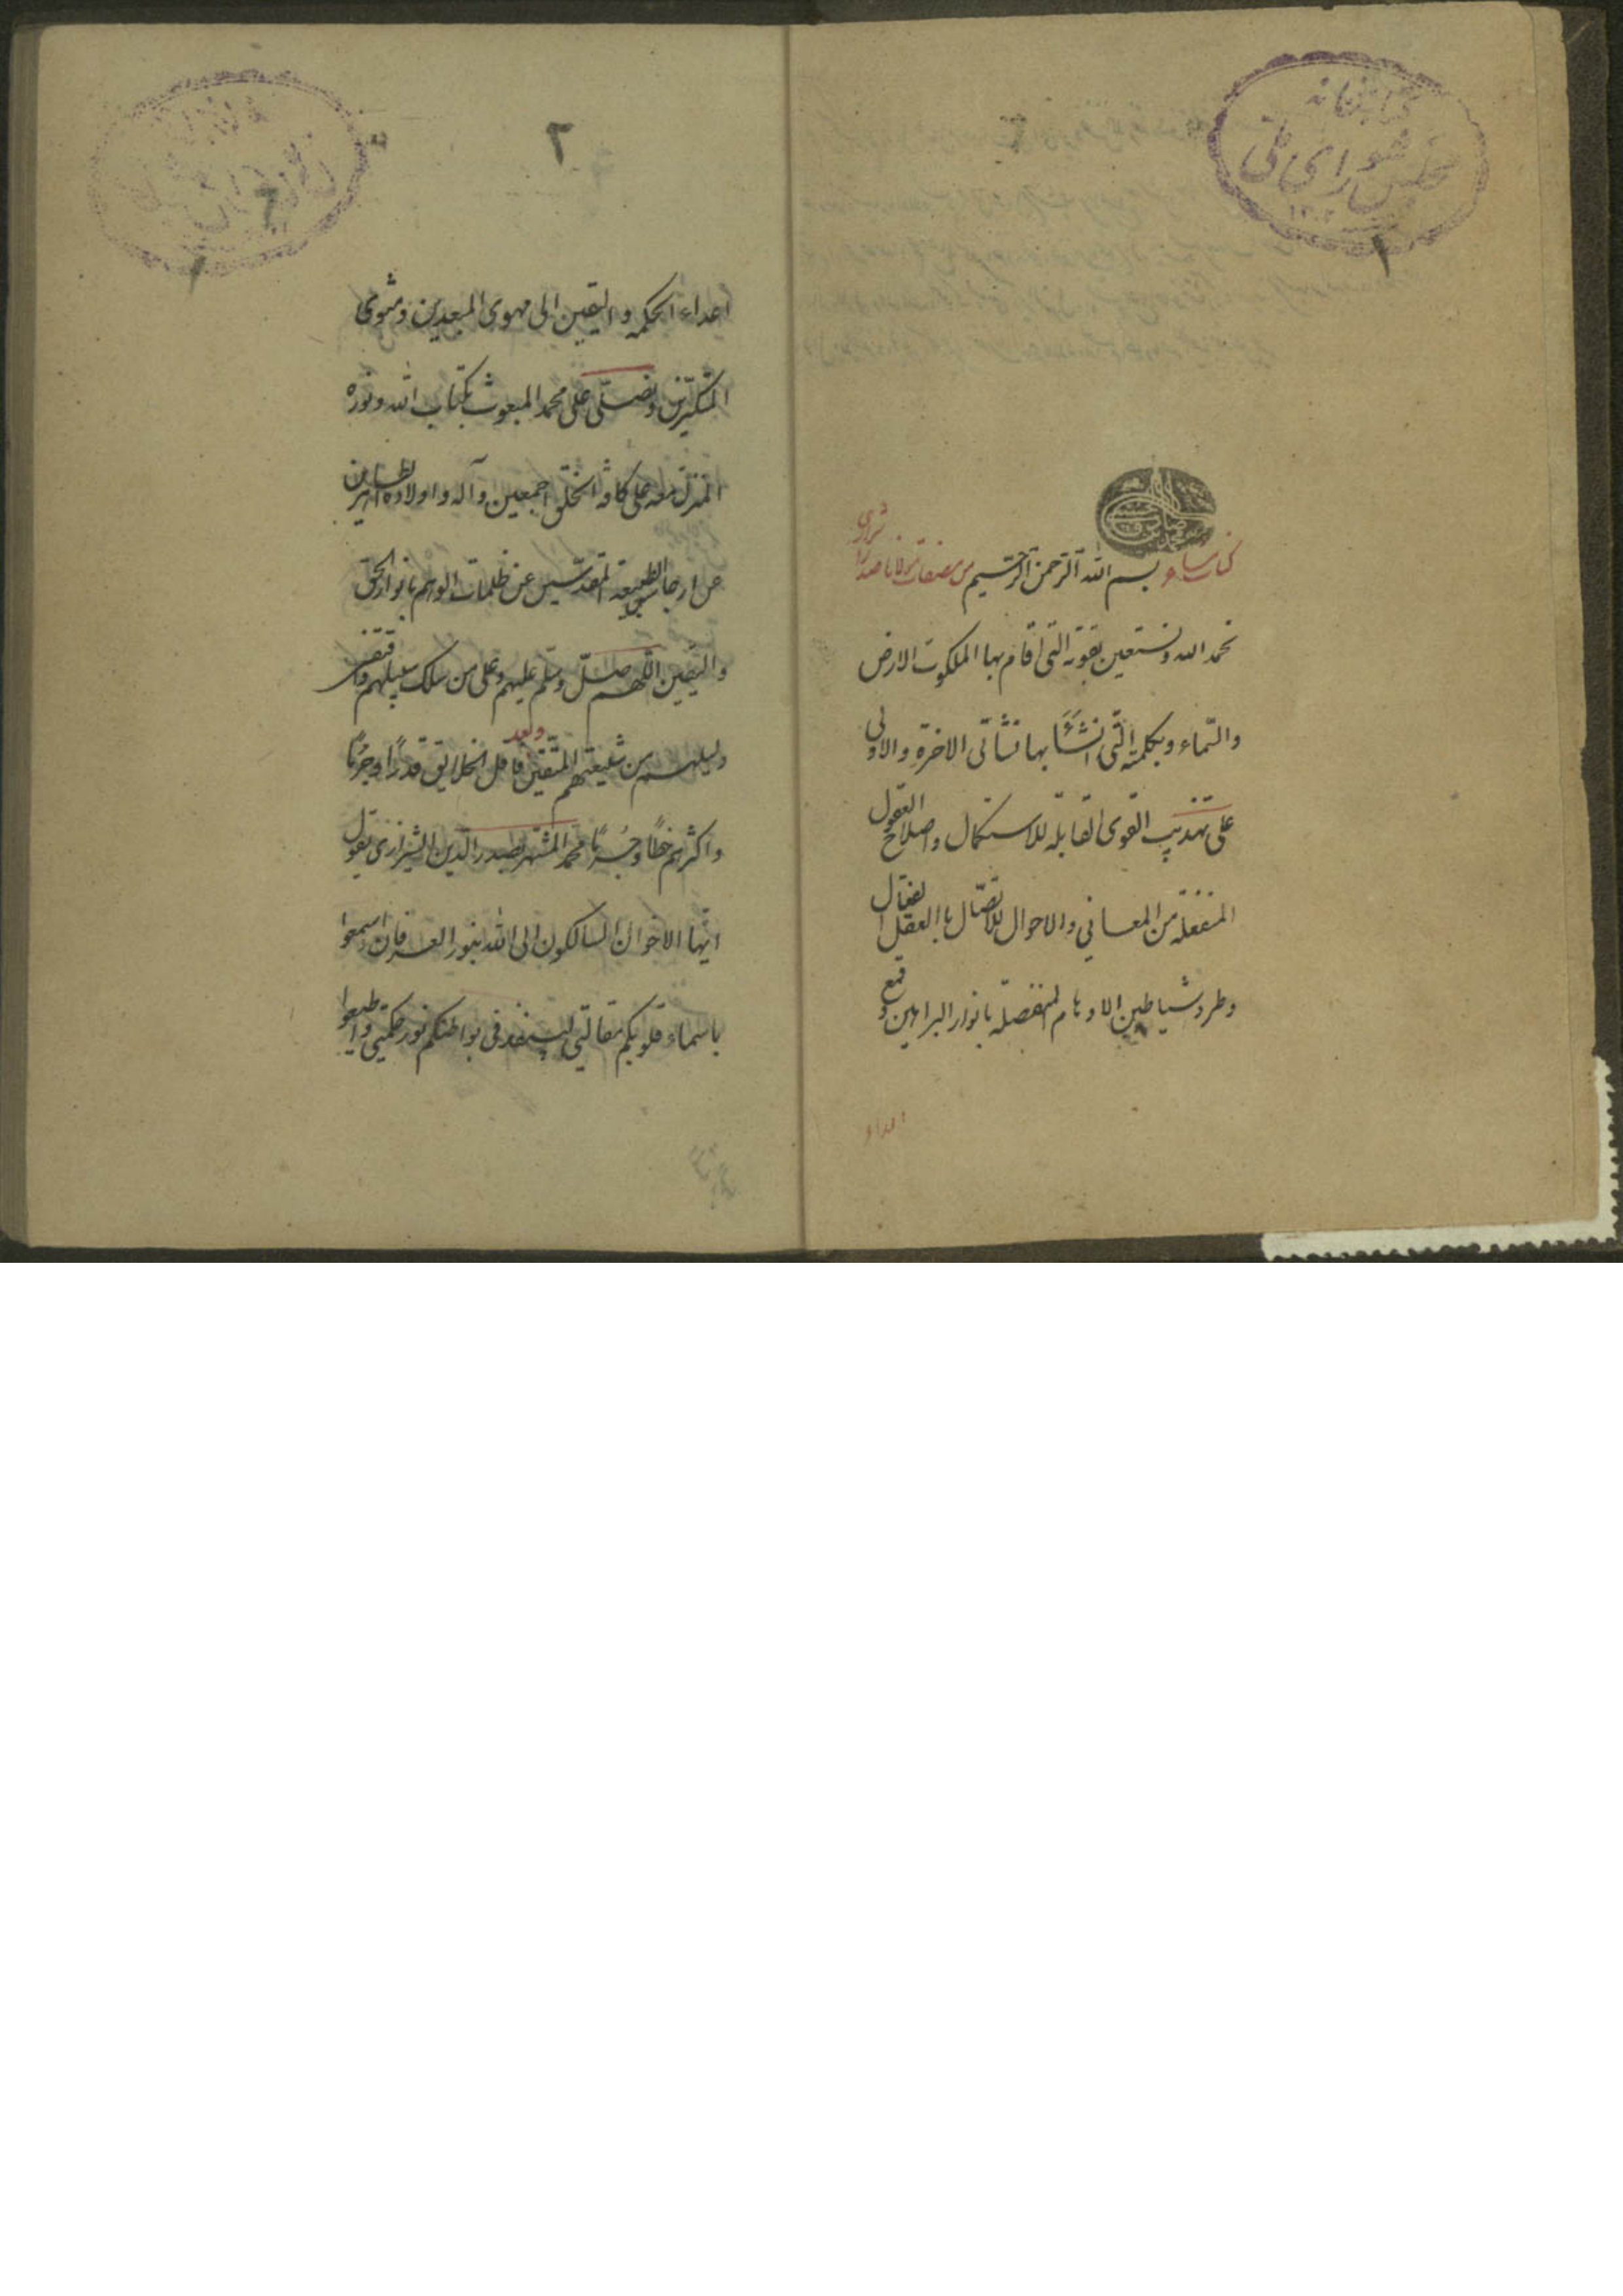 كتابخانه
مجلس شورای ملی
١
شیرازی
کتاب مشاعر بسم الله الرحمن الرحیم من مصنفات مولانا صدرا
نحمد الله ونستعين بقوته التی اقام بها الملکوت الارض
والسّماء وبكلمته الّتی انشَأَ بها نشأتی الاخرة والاولی
علی تهذیب القوی القابلة للاستکمال واصلاح العقول
المنفعلة من المعانی والاحوال للاتصّال باالعقل الفعال
وطرد شیاطین الاوهام المضلة بانوار البراهین وقمع
اعداء
٢
اعداء الحکمه والیقین الی مهوی المبعدین ومثوی
المتکبّرین ونصلّی علی محمد المبعوث بکتاب الله ونوره
المنزل معه علی کافة الخلق اجمعین وآله واولاده الطاهرین
عن ارجاس الطبیعة المقدّسین عن ظلمات الوهم بانوار الحق
والیقین اللّهم صلّ وسلّم علیهم وعلی من سلک سبیلهم واقتفی
دلیلهم من شیعتهم المتّقین وبعد فاقل الخلایق قدرًا وجرمًا
واکثرهم خطأ وجُرمًا محمد المشتهر بصدر الدین الشیرازی یقول
ایّها الاخوان السالکون الی الله بنور العرفان اسمعوا
باسماع قلوبکم مقالتی لینفذ فی بواطنکم نور حکمتی واطیعوا